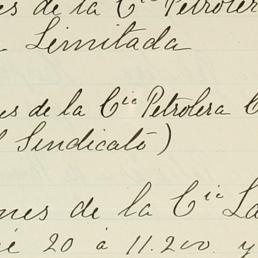 es de la Cia Petrolera
Limitada
es de la Cia Petrolera C
Sindicató)
nes de la Cia La
20 á 11.200 y